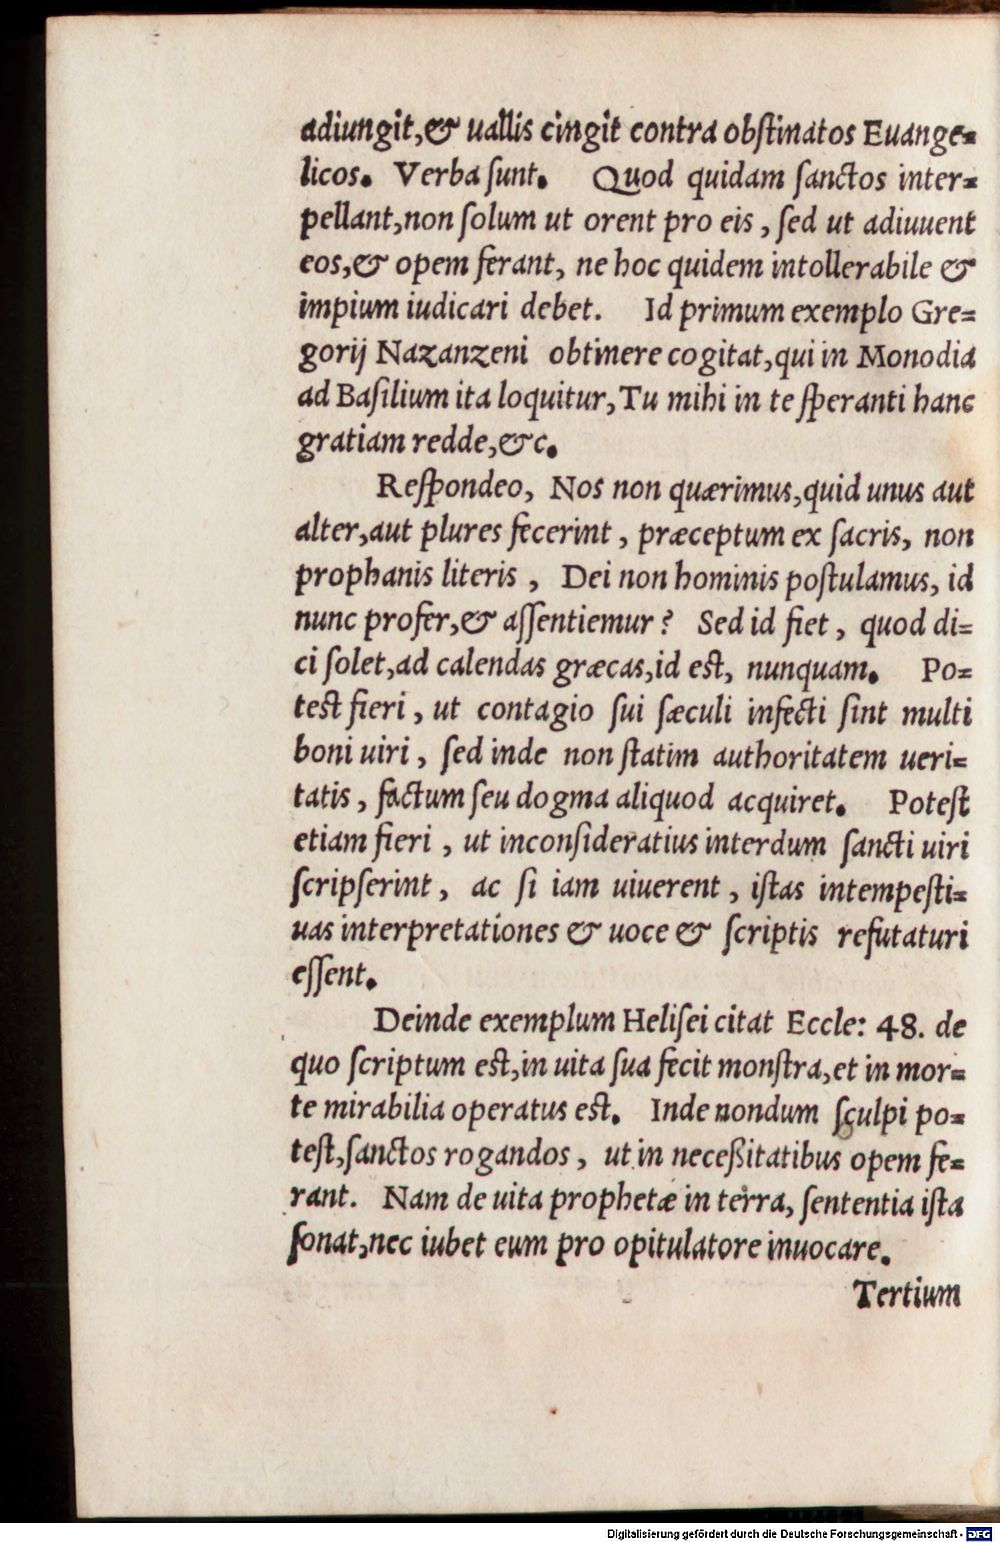 adiungit,& uallis cingit contra obſtinatos Euange=
licos. Verba ſunt. Quod quidam ſanctos inter=
pellant,non ſolum ut orent pro eis, ſed ut adiuuent
eos,& opem ferant, ne hoc quidem intollerabile &
impium iudicari debet. Id primum exemplo Gre=
gorij Nazanzeni obtinere cogitat,qui in Monodia
ad Baſilium ita loquitur,Tu mihi in te ſperanti hanc
gratiam redde,&c.
Reſpondeo, Nos non quærimus,quid unus aut
alter,aut plures fecerint, præceptum ex ſacris, non
prophanis literis, Dei non hominis poſtulamus, id
nunc profer,& aſſentiemur? Sed id fiet, quod di=
ci ſolet,ad calendas græcas,id eſt, nunquam. Po=
teſt fieri, ut contagio ſui ſæculi infecti ſint multi
boni uiri, ſed inde non ſtatim authoritatem ueri=
tatis, factum ſeu dogma aliquod acquiret. Poteſt
etiam fieri, ut inconſideratius interdum ſancti uiri
ſcripſerint, ac ſi iam uiuerent, iſtas intempeſti=
uas interpretationes & uoce & ſcriptis refutaturi
eſſent.
Deinde exemplum Heliſei citat Eccle: 48. de
quo ſcriptum eſt,in uita ſua fecit monſtra,et in mor=
te mirabilia operatus eſt. Inde nondum ſculpi po=
teſt,ſanctos rogandos, ut in neceßitatibus opem fe=
rant. Nam de uita prophetæ in terra, ſententia iſta
ſonat,nec iubet eum pro opitulatore inuocare.
Tertium
Digitalisierung gefördert durch die Deutsche Forschungsgemeinschaft - DFG